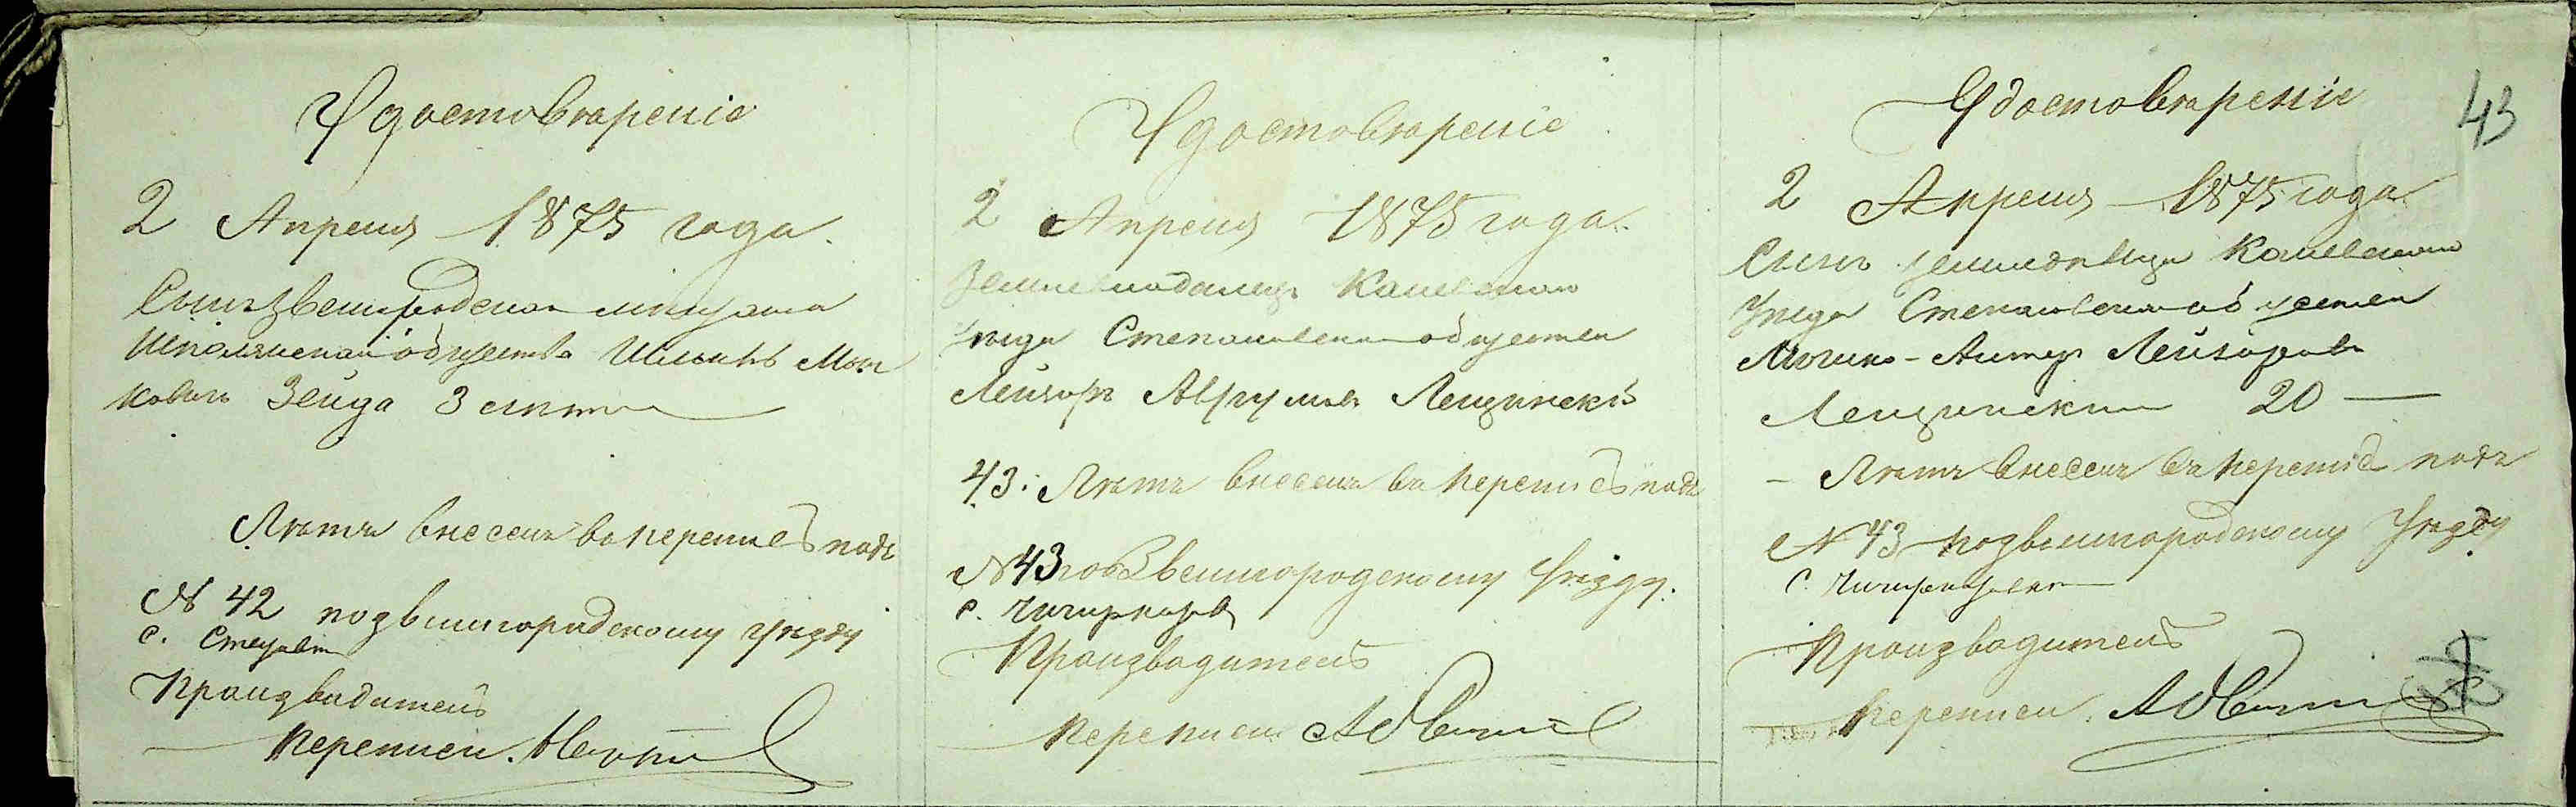 Удостоверение
2 Апреля 1875 года.
Сынъ Звенигородскаго мещанина
Шполянскаго общества Шлиомъ Мош
ковичъ Зейда 3 летъ
Летъ внесенъ въ перепись подъ
№ 42 по Звенигородскому уезду
с.
Производитель
переписи.
Удостоверение
2 Апреля 1875 года.
Земледелецъ Каневскаго
уезда Степановскаго общества
Лейзоръ Аврумовъ Лещинскій
43. Летъ внесенъ въ перепись подъ
№ 43 по Звенигородскому уезду.
с.
Производитель
переписи
43
Удостоверение
2 Апреля 1875 года
Сынъ земледельца Каневскаго
уезда Степановскаго общества
Мошко-Лейзоровъ
Лещинский 20 —
- Летъ внесенъ въ перепись подъ
№ 43 по Звенигородскому уезду
с.
Производитель
переписи.